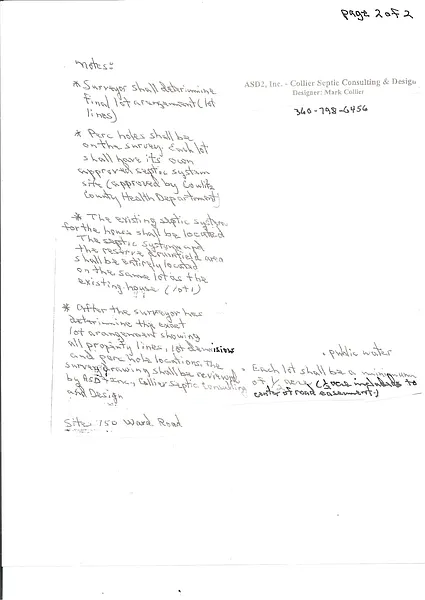 page 2 of 2
Notes:-
ASD2, Inc. - Collier Septic Consulting & Design
Designer: Mark Collier
360-798-6456
* Surveyor shall deterimine
Final lot arangement (lot
lines)
* Perc holes shall be
on the survey. Each lot
shall have its own
approved septic system
site (approved by Cowlitz
County Health Department)
* The existing septic system
for the house shall be located
The septic system and
the reserve drainfield area
shall be entirely located
on the same lot as the
existing house (lot 1)
* After the surveyor has
determine the exact
lot arangement showing
all property lines, lot
and perc hole locations. The
survey drawing shall be reviewed
by ASD2, Inc, Collier Septic Consulting
and Design
• Public water
• Each lot shall be a minimum
of 1/2 acre
center of road easement.)
Site: 150 Ward Road